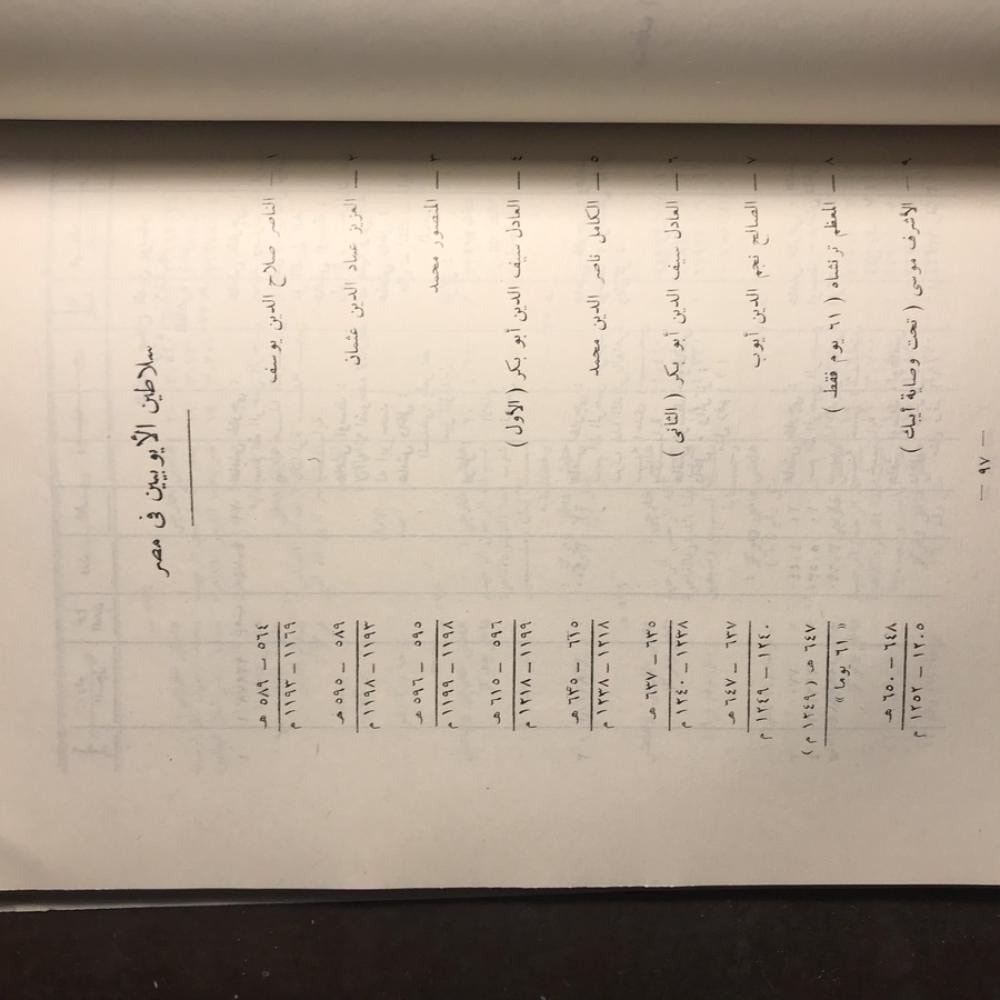 سلاطين الأيوبيين فى مصر
١ — الناصر صلاح الدين يوسف
٥٦٤ — ٥٨٩ هـ
١١٦٩ — ١١٩٣ م
٢ — العزيز عماد الدين عثمان
٥٨٩ — ٥٩٥ هـ
١١٩٣ — ١١٩٨ م
٣ — المنصور محمد
٥٩٥ — ٥٩٦ هـ
١١٩٨ — ١١٩٩ م
٤ — العادل سيف الدين أبو بكر ( الأول )
٥٩٦ — ٦١٥ هـ
١١٩٩ — ١٢١٨ م
٥ — الكامل ناصر الدين محمد
٦١٥ — ٦٣٥ هـ
١٢١٨ — ١٢٣٨ م
٦ — العادل سيف الدين أبو بكر ( الثانى )
٦٣٥ — ٦٣٧ هـ
١٢٣٨ — ١٢٤٠ م
٧ — الصالح نجم الدين أيوب
٦٣٧ — ٦٤٧ هـ
١٢٤٠ — ١٢٤٩ م
٨ — المعظم ترنشاه ( ٦١ يوم فقط )
٦٤٧ هـ ( ١٢٤٩ م )
« ٦١ يوما »
٩ — الأشرف موسى ( تحت وصاية أيبك )
٦٤٨ — ٦٥٠ هـ
١٢٠٥ — ١٢٥٢ م
— ٩٧ —